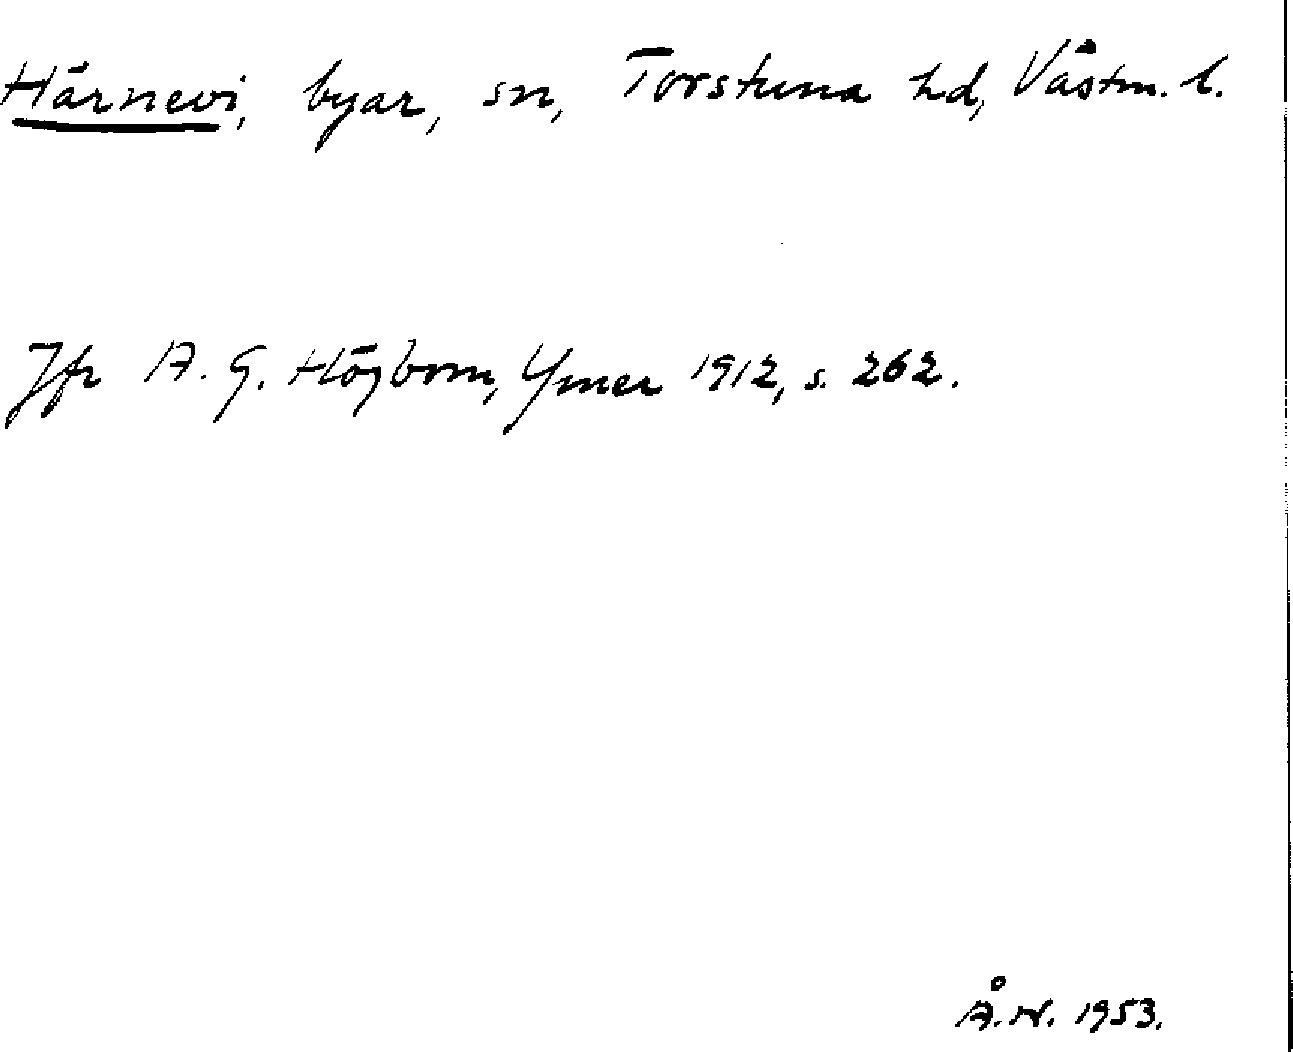 Härnevi, byar, sn, Torstuna hd, Västm. l.
Jfr A. G. Högbom, Ymer 1912, s. 262.
Å. N. 1953.